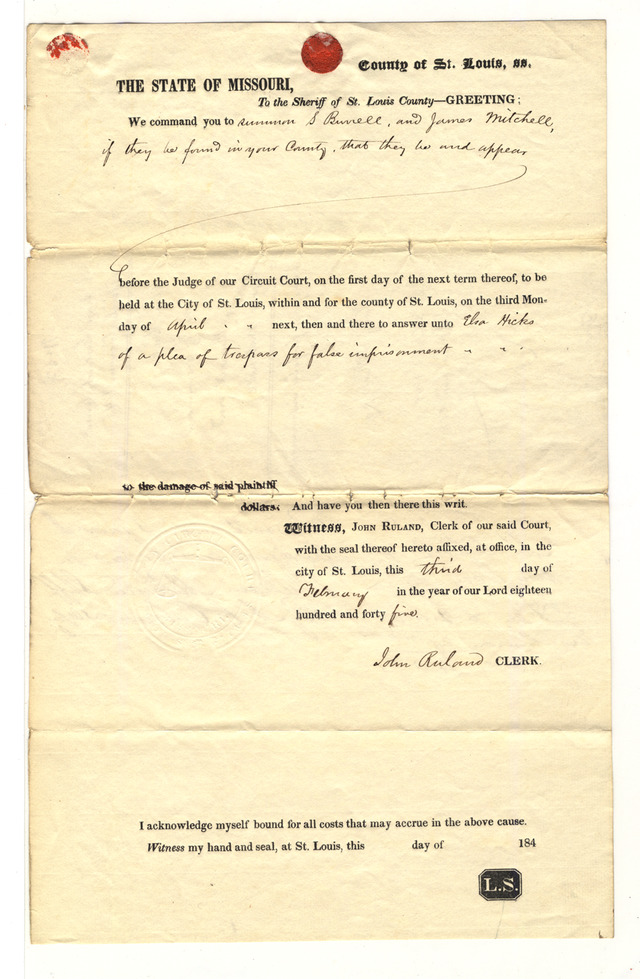 County of St. Louis, ss.
THE STATE OF MISSOURI,
To the Sheriff of St. Louis County—GREETING;
We command you to summon S Burrell, and James Mitchell,
if they be found in your County, that they be and appear
before the Judge of our Circuit Court, on the first day of the next term thereof, to be
held at the City of St. Louis, within and for the county of St. Louis, on the third Mon-
day of April " " next, then and there to answer unto Elsa Hicks
of a plea of trespass for false imprisonment " " .
to the damage of said plaintiff
dollars. And have you then there this writ.
Witness, JOHN RULAND, Clerk of our said Court,
with the seal thereof hereto affixed, at office, in the
city of St. Louis, this third day of
February in the year of our Lord eighteen
hundred and forty five.
John Ruland CLERK.
I acknowledge myself bound for all costs that may accrue in the above cause.
Witness my hand and seal, at St. Louis, this day of 184
L.S.